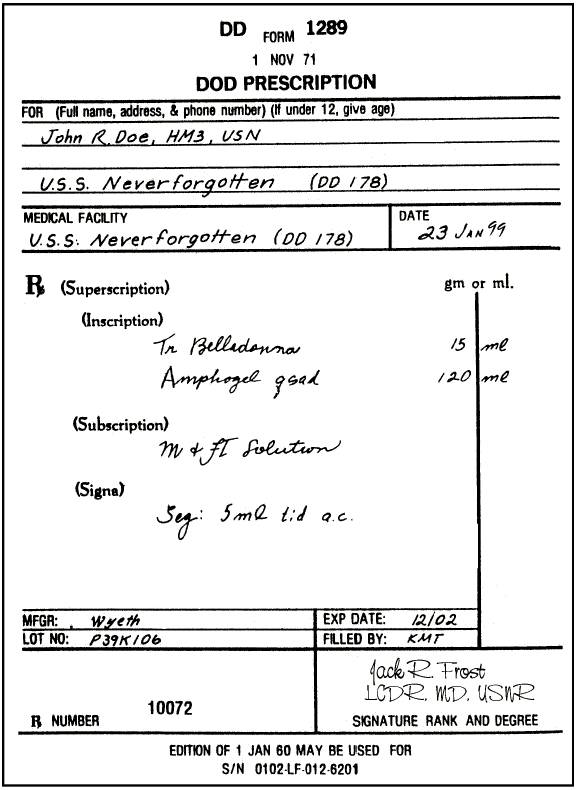 DD FORM 1289
1 NOV 71
DOD PRESCRIPTION
FOR (Full name, address, & phone number) (If under 12, give age)
John R. Doe, HM3, USN
U.S.S. Neverforgotten (DD 178)
MEDICAL FACILITY
U.S.S. Neverforgotten (DD 178)
DATE
23 JAN 99
℞ (Superscription)
gm or ml.
(Inscription)
Tr Belladonna 15 ml
Amphogel qsad 120 ml
(Subscription)
M & FT Solution
(Signa)
Sig: 5ml tid a.c.
MFGR: Wyeth
EXP DATE: 12/02
LOT NO: P39K106
FILLED BY: KMT
Jack R. Frost
LCDR, MD, USNR
10072
℞ NUMBER
SIGNATURE RANK AND DEGREE
EDITION OF 1 JAN 60 MAY BE USED FOR
S/N 0102-LF-012-6201